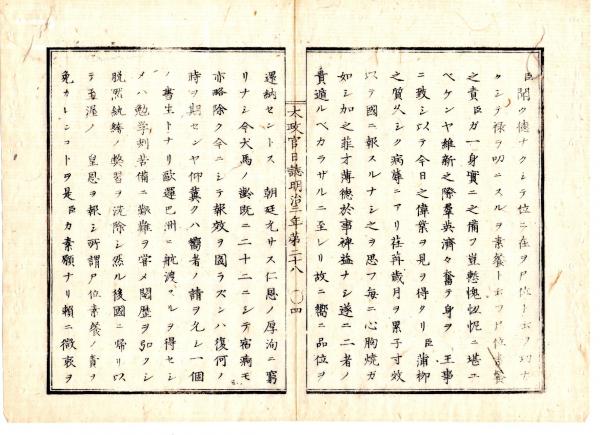 臣聞ク徳ナクシテ位ニ在ヲ尸位ト云フ功ナ
クシテ禄ヲ叨ニスルヲ素餐ト云フ尸位素餐
之責臣ガ一身實ニ之ニ備フ豈慙愧忸怩ニ堪ユ
ベケンヤ維新之際羣英濟々奮テ身ヲ 王事
ニ致シ以テ今日之偉業ヲ見ヲ得タリ臣蒲柳
之質久シク病蓐ニアリ荏苒歳月ヲ累子寸效
以テ國ニ報スルナシ之ヲ思フ毎ニ心胸焼ガ
如シ加之菲才薄德於事裨益ナシ遂ニ二者ノ
責遁ルベカラザルニ至レリ故ニ嚮ニ品位ヲ
太政官日誌明治三年第二十八 〇四
還納セントス 朝廷允サス仁恩ノ厚洵ニ窮
リナシ今犬馬ノ齡既ニ二十二ニシテ宿痾モ
亦略除ク今ニシテ報效ヲ圖ラズンハ復何ノ
時ヲ期センヤ仰冀クハ嚮者ノ請ヲ允シ一個
ノ書生トナリ歐邏巴洲ニ航渡スルヲ得セシ
メハ勉學刻苦備ニ艱難ヲ嘗メ閲歴ヲ弘クシ
脱然紈綺ノ弊習ヲ洗除シ然ル後國ニ歸リ以
テ至渥ノ 皇恩ヲ報シ所謂尸位素餐ノ責ヲ
免カレンコトヲ是臣カ素願ナリ賴ニ微衷ヲ